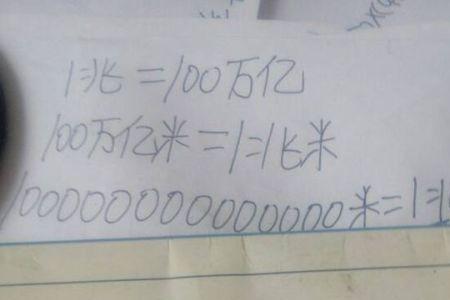 1兆=100万亿
100万亿米=1兆米
100000000000000米=1